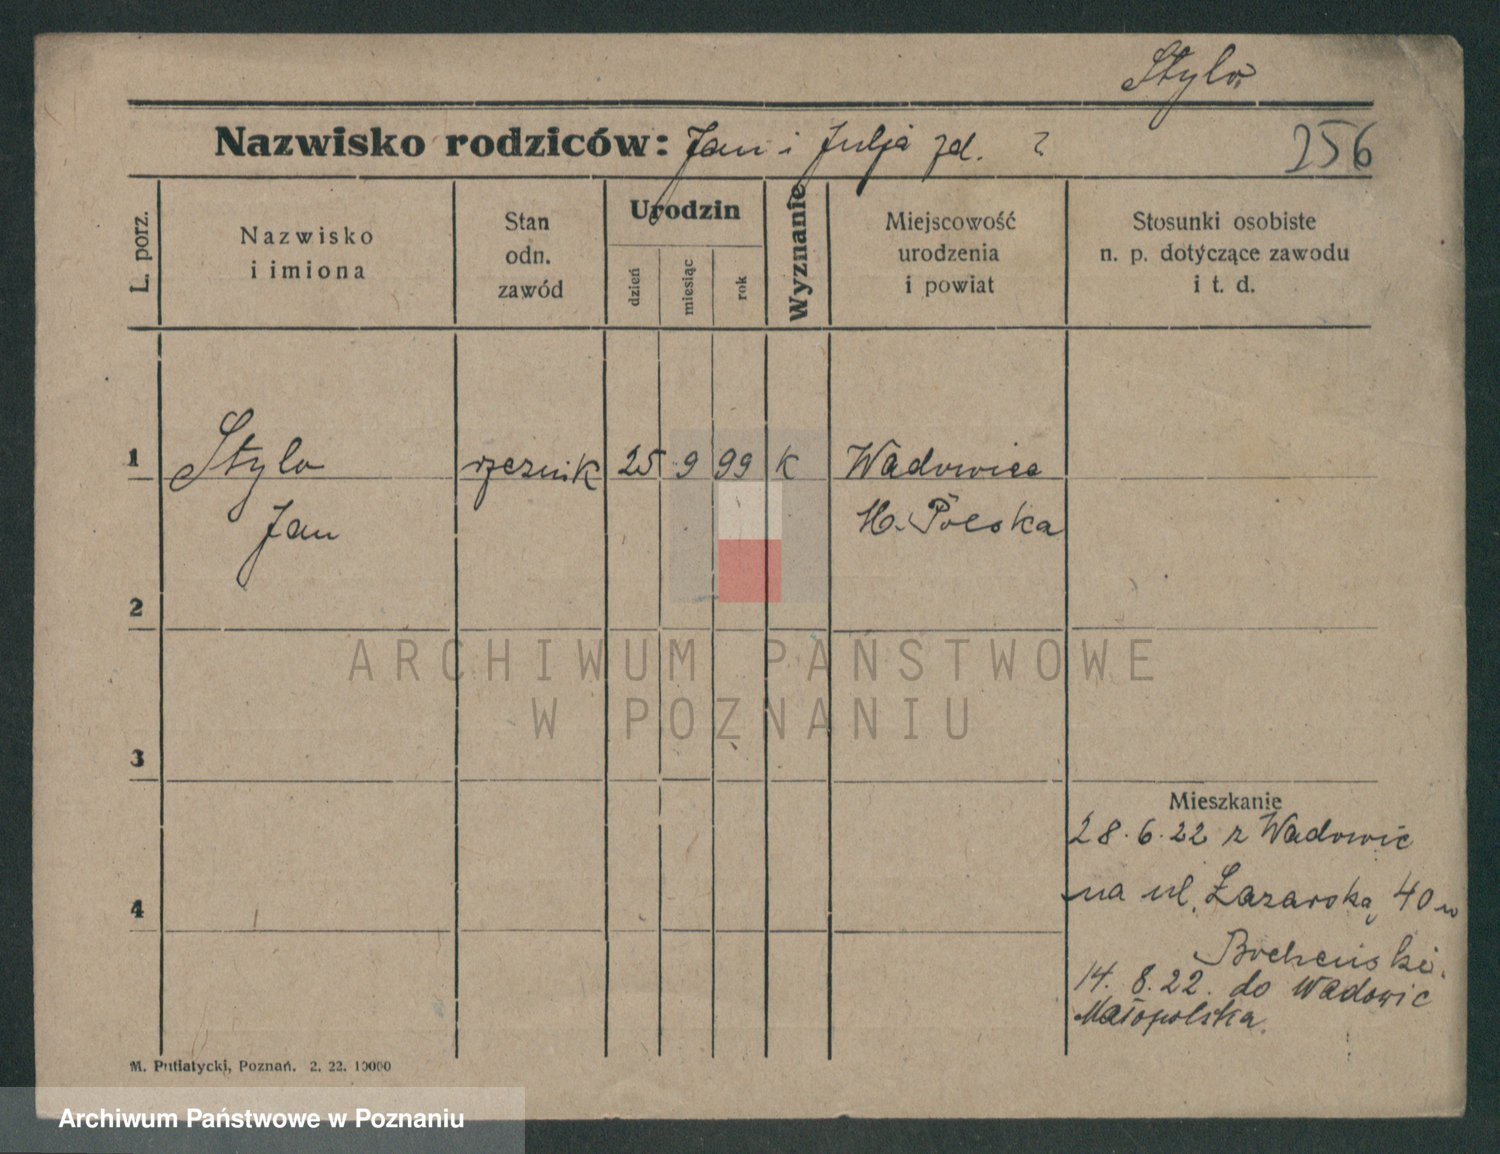 Stylo
Nazwisko rodziców: Jan i Julja zd. ?
256
L. porz.
Nazwisko
i imiona
Stan
odn.
zawód
Urodzin
dzień
miesiąc
rok
Wyznanie
Miejscowość
urodzenia
i powiat
Stosunki osobiste
n. p. dotyczące zawodu
i t. d.
1
Stylo
rzeznik
25
9
99
k
Wadowice
Jan
M. Polska
2
ARCHIWUM PAŃSTWOWE
W POZNANIU
3
Mieszkanie
28.6.22 z Wadowic
4
na ul. Łazarską 40 w
Bochenski.
14. 8.22. do Wadowic
Małopolska.
M. Putiatycki, Poznań. 2. 22. 10000
Archiwum Państwowe w Poznaniu